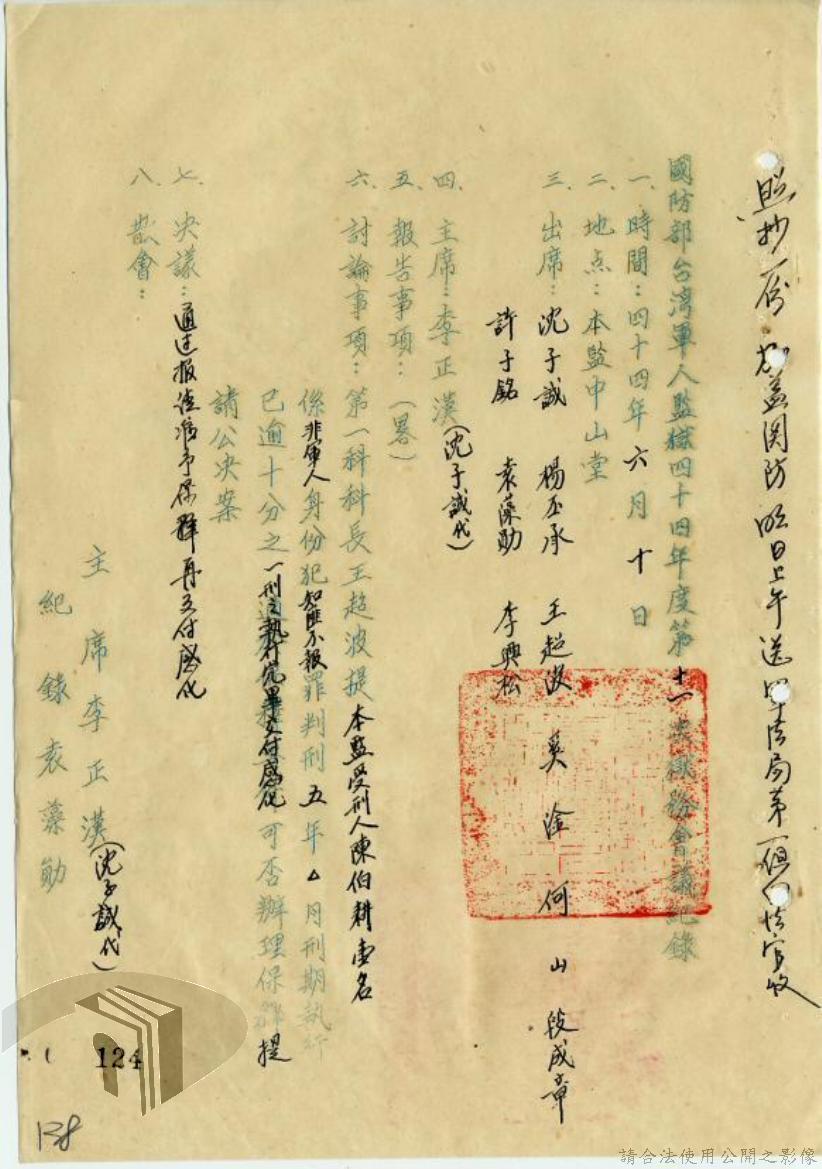 照抄一份加蓋関防明日上午送軍法局第一組
國防部台湾軍人監獄四十四年度第十一次獄務會議紀錄
一、時間：四十四年六月十日
二、地点：本監中山堂
三、出席：沈子誠 楊丕承 王超波 奚淦 何山 段成章
許子銘 袁藻勛 李興松
四、主席：李正漢（沈子誠代）
五、報告事項：（畧）
六、討論事項：第一科科長王超波提本監受刑人陳伯耕壹名
係非軍人身份犯知匪不報罪判刑五年△月刑期執行
已逾十分之一刑之執行完畢交付感化可否辦理保釋提
請公決案
七、決議：通过报請准予保釋再交付感化
八、散會：
主席李正漢（沈子誠代）
紀錄袁藻勛
124
138
請合法使用公開之影像